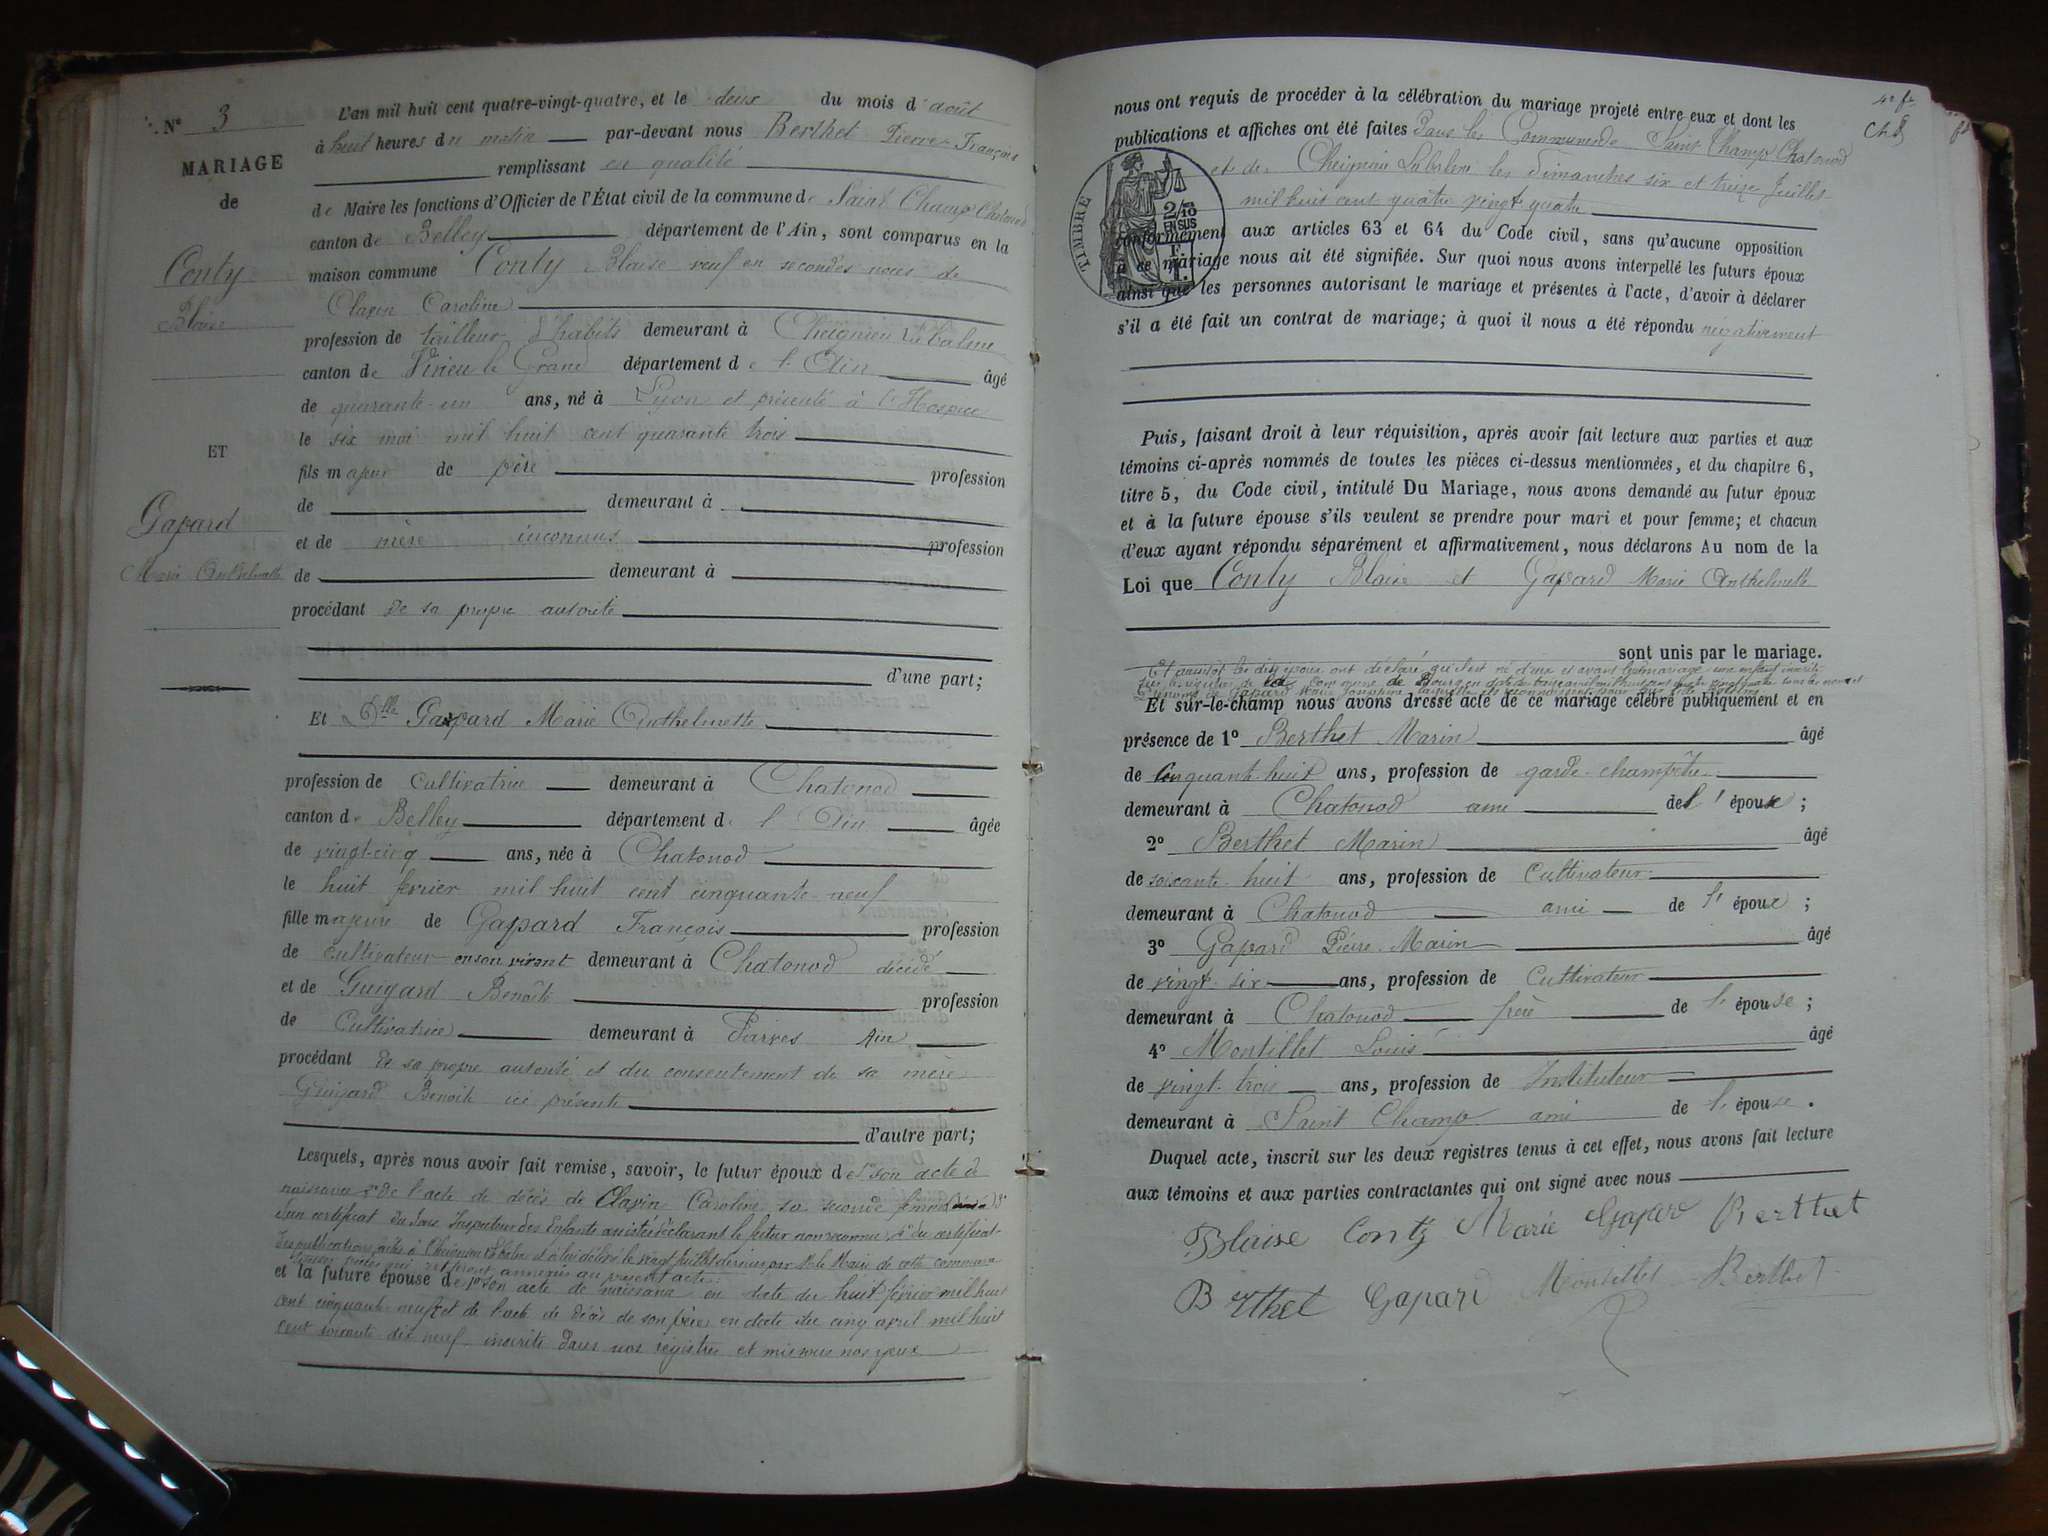 N° 3
MARIAGE
de
Conty
Blaise
ET
Gapard
Marie Anthelmette
L'an mil huit cent quatre-vingt-quatre, et le deux du mois d'août
à huit heures du matin par-devant nous Berthet Pierre François
remplissant en qualité
de Maire les fonctions d'Officier de l'État civil de la commune de Saint Champ Chatonod
canton de Belley département de l'Ain, sont comparus en la
maison commune Conty Blaise veuf en secondes noces de
Clapin Caroline
profession de tailleur d'habits demeurant à Cheignieu Labalme
canton de Virieu le Grand département de l'Ain âgé
de quarante-un ans, né à Lyon et présenté à l'Hospice
le six mai mil huit cent quarante trois
fils majeur de père profession
de demeurant à
et de mère inconnus profession
de demeurant à
procédant de sa propre autorité
d'une part;
Et Dlle Gaspard Marie Anthelmette
profession de cultivatrice demeurant à Chatonod
canton de Belley département de l'Ain âgée
de vingt-cinq ans, née à Chatonod
le huit fevrier mil huit cent cinquante-neuf
fille majeure de Gapard François profession
de cultivateur en son vivant demeurant à Chatonod décédé
et de Guigard Benoîte profession
de Cultivatrice demeurant à Parves Ain
procédant de sa propre autorité et du consentement de sa mère
Guigard Benoîte ici présente
d'autre part;
Lesquels, après nous avoir fait remise, savoir, le futur époux de 1° son acte de
naissance 2° de l'acte de décès de Clapin Caroline sa seconde femme 3°
d'un certificat du Sous Inspecteur des Enfants assistés déclarant le futur non reconnu 4° du certificat
des publications faites à Cheignieu Labalme et à lui délivré le vingt juillet dernier par M. le Maire de cette commune
pièces qui resteront annexées au présent acte.
et la future épouse de 1° son acte de naissance en date du huit février mil huit
cent cinquante-neuf et de l'acte de décès de son père en date du cinq april mil huit
cent soixante-dix neuf inscrits dans nos registres et mis sous nos yeux
nous ont requis de procéder à la célébration du mariage projeté entre eux et dont les
publications et affiches ont été faites dans les Communes de Saint Champ Chatonod
et de Cheignieu Labalme les dimanches six et treize Juillet
mil huit cent quatre vingt quatre
TIMBRE
2/10
EN SUS
conformément aux articles 63 et 64 du Code civil, sans qu'aucune opposition
à ce mariage nous ait été signifiée. Sur quoi nous avons interpellé les futurs époux
ainsi que les personnes autorisant le mariage et présentes à l'acte, d'avoir à déclarer
s'il a été fait un contrat de mariage; à quoi il nous a été répondu négativement
Puis, faisant droit à leur réquisition, après avoir fait lecture aux parties et aux
témoins ci-après nommés de toutes les pièces ci-dessus mentionnées, et du chapitre 6,
titre 5, du Code civil, intitulé Du Mariage, nous avons demandé au futur époux
et à la future épouse s'ils veulent se prendre pour mari et pour femme; et chacun
d'eux ayant répondu séparément et affirmativement, nous déclarons Au nom de la
Loi que Conty Blaise et Gapard Marie Anthelmette
sont unis par le mariage.
Et aussitôt les dits époux ont déclaré qu'il est né d'eux et avant leur mariage un enfant inscrit
sur le registre de la commune de Bourg en date du mil huit cent quatre vingt quatre sous les noms et
prénoms de Gapard Marie Joséphine laquelle ils reconnaissent pour
Et sur-le-champ nous avons dressé acte de ce mariage célébré publiquement et en
présence de 1° Berthet Marin âgé
de Cinquante-huit ans, profession de garde-champêtre
demeurant à Chatonod ami de l'épouse;
2° Berthet Marin âgé
de soixante-huit ans, profession de Cultivateur
demeurant à Chatonod ami de l'épouse;
3° Gapard Pierre Marin âgé
de vingt-six ans, profession de Cultivateur
demeurant à Chatonod frère de l'épouse;
4° Montillet Louis âgé
de vingt-trois ans, profession de Instituteur
demeurant à Saint Champ ami de l'épouse.
Duquel acte, inscrit sur les deux registres tenus à cet effet, nous avons fait lecture
aux témoins et aux parties contractantes qui ont signé avec nous
Blaise Conty Marie Gapar Berthet
Berthet Gapard Montillet Berthet